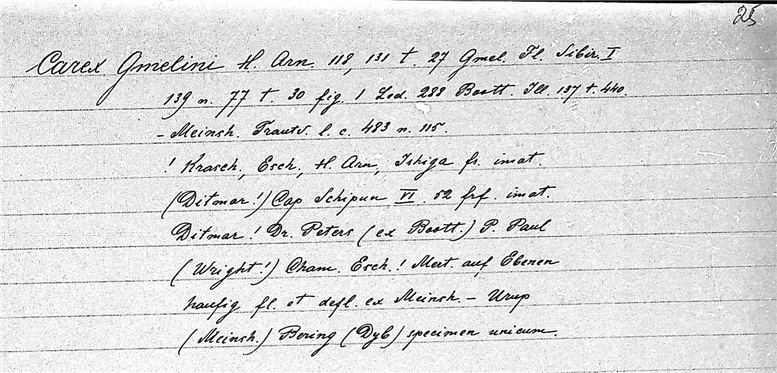 25
Carex Gmelini H. Arn. 118, 131 t. 27 Gmel. Fl. Sibir. I
139 n. 77 t. 30 fig. 1 Led. 288 Boott. Ill. 137 t. 440.
- Meinsh. Trautv. l. c. 483 n. 115.
! Krasch, Esch, H. Arn, Ishiga fr. imat.
(Ditmar!) Cap Schipun VI. 52 frf. imat.
Ditmar! Dr. Peters (ex Boott.) P. Paul
(Wright!) Cham. Esch.! Mert. auf Ebenen
haufig fl. et defl. ex Meinsh. - Urup
(Meinsh.) Bering (Dyb) specimen unicum.